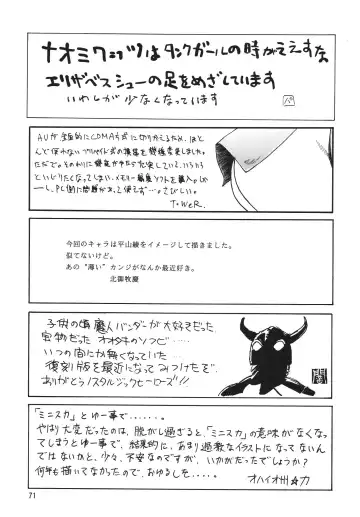 ナオミワッツはタンクガールの時がええすなぁ
エリザベスシューの足をめざしています
いわしが少なくなっています
AUが全面的にCDMA方式に切りかえるため、ほと
んど使わないプリペイド式の携帯を機種変更しました。
ただで。そのわりに機能がやたら充実している。いろいろ
といじりたくなってしまい、メモリー編集ソフトを購入。しか
ーし、PC側に問題があって使えず…。さびしい。
TOWeR.
今回のキャラは平山綾をイメージして描きました。
似てないけど。
あの“薄い”カンジがなんか最近好き。
北御牧慶
子供の頃 魔人バンダーが大好きだった
宝物だった オオタキのソフビ…
いつの間にか無くなっていた…
復刻版を最近になってみつけたぞ
ありがとうノスタルジックヒーローズ!!
「ミニスカ」とゆー事で......。
やはり大変だったのは、脱がし過ぎると、「ミニスカ」の意味がなくなっ
てしまうとゆー事で、結果的に、あまり過激なイラストに なってないん
ではないかと、少々、不安なのですが、いかがだったでしょうか?
何年も描いてなかったので、おゆるしを.....。
オハイオ州☆力
71